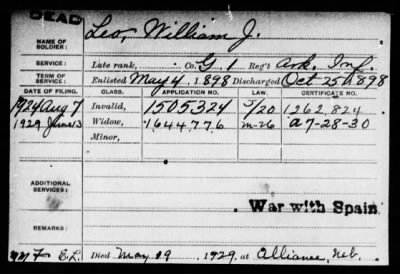 DEAD
NAME OF SOLDIER: Leo, William J.
SERVICE: Late rank, Co. G, 1 Reg't Ark. Inf.
TERM OF SERVICE: Enlisted May 4, 1898 Discharged Oct 25, 1898
DATE OF FILING. CLASS. APPLICATION NO. LAW. CERTIFICATE NO.
1924 Aug 7 Invalid, 1505324 5/20 1262,824
1929 June 13 Widow, 1644776 m-26 a 7-28-30
Minor,
ADDITIONAL SERVICES:
War with Spain
REMARKS:
Died May 19, 1929, at Alliance, Neb.